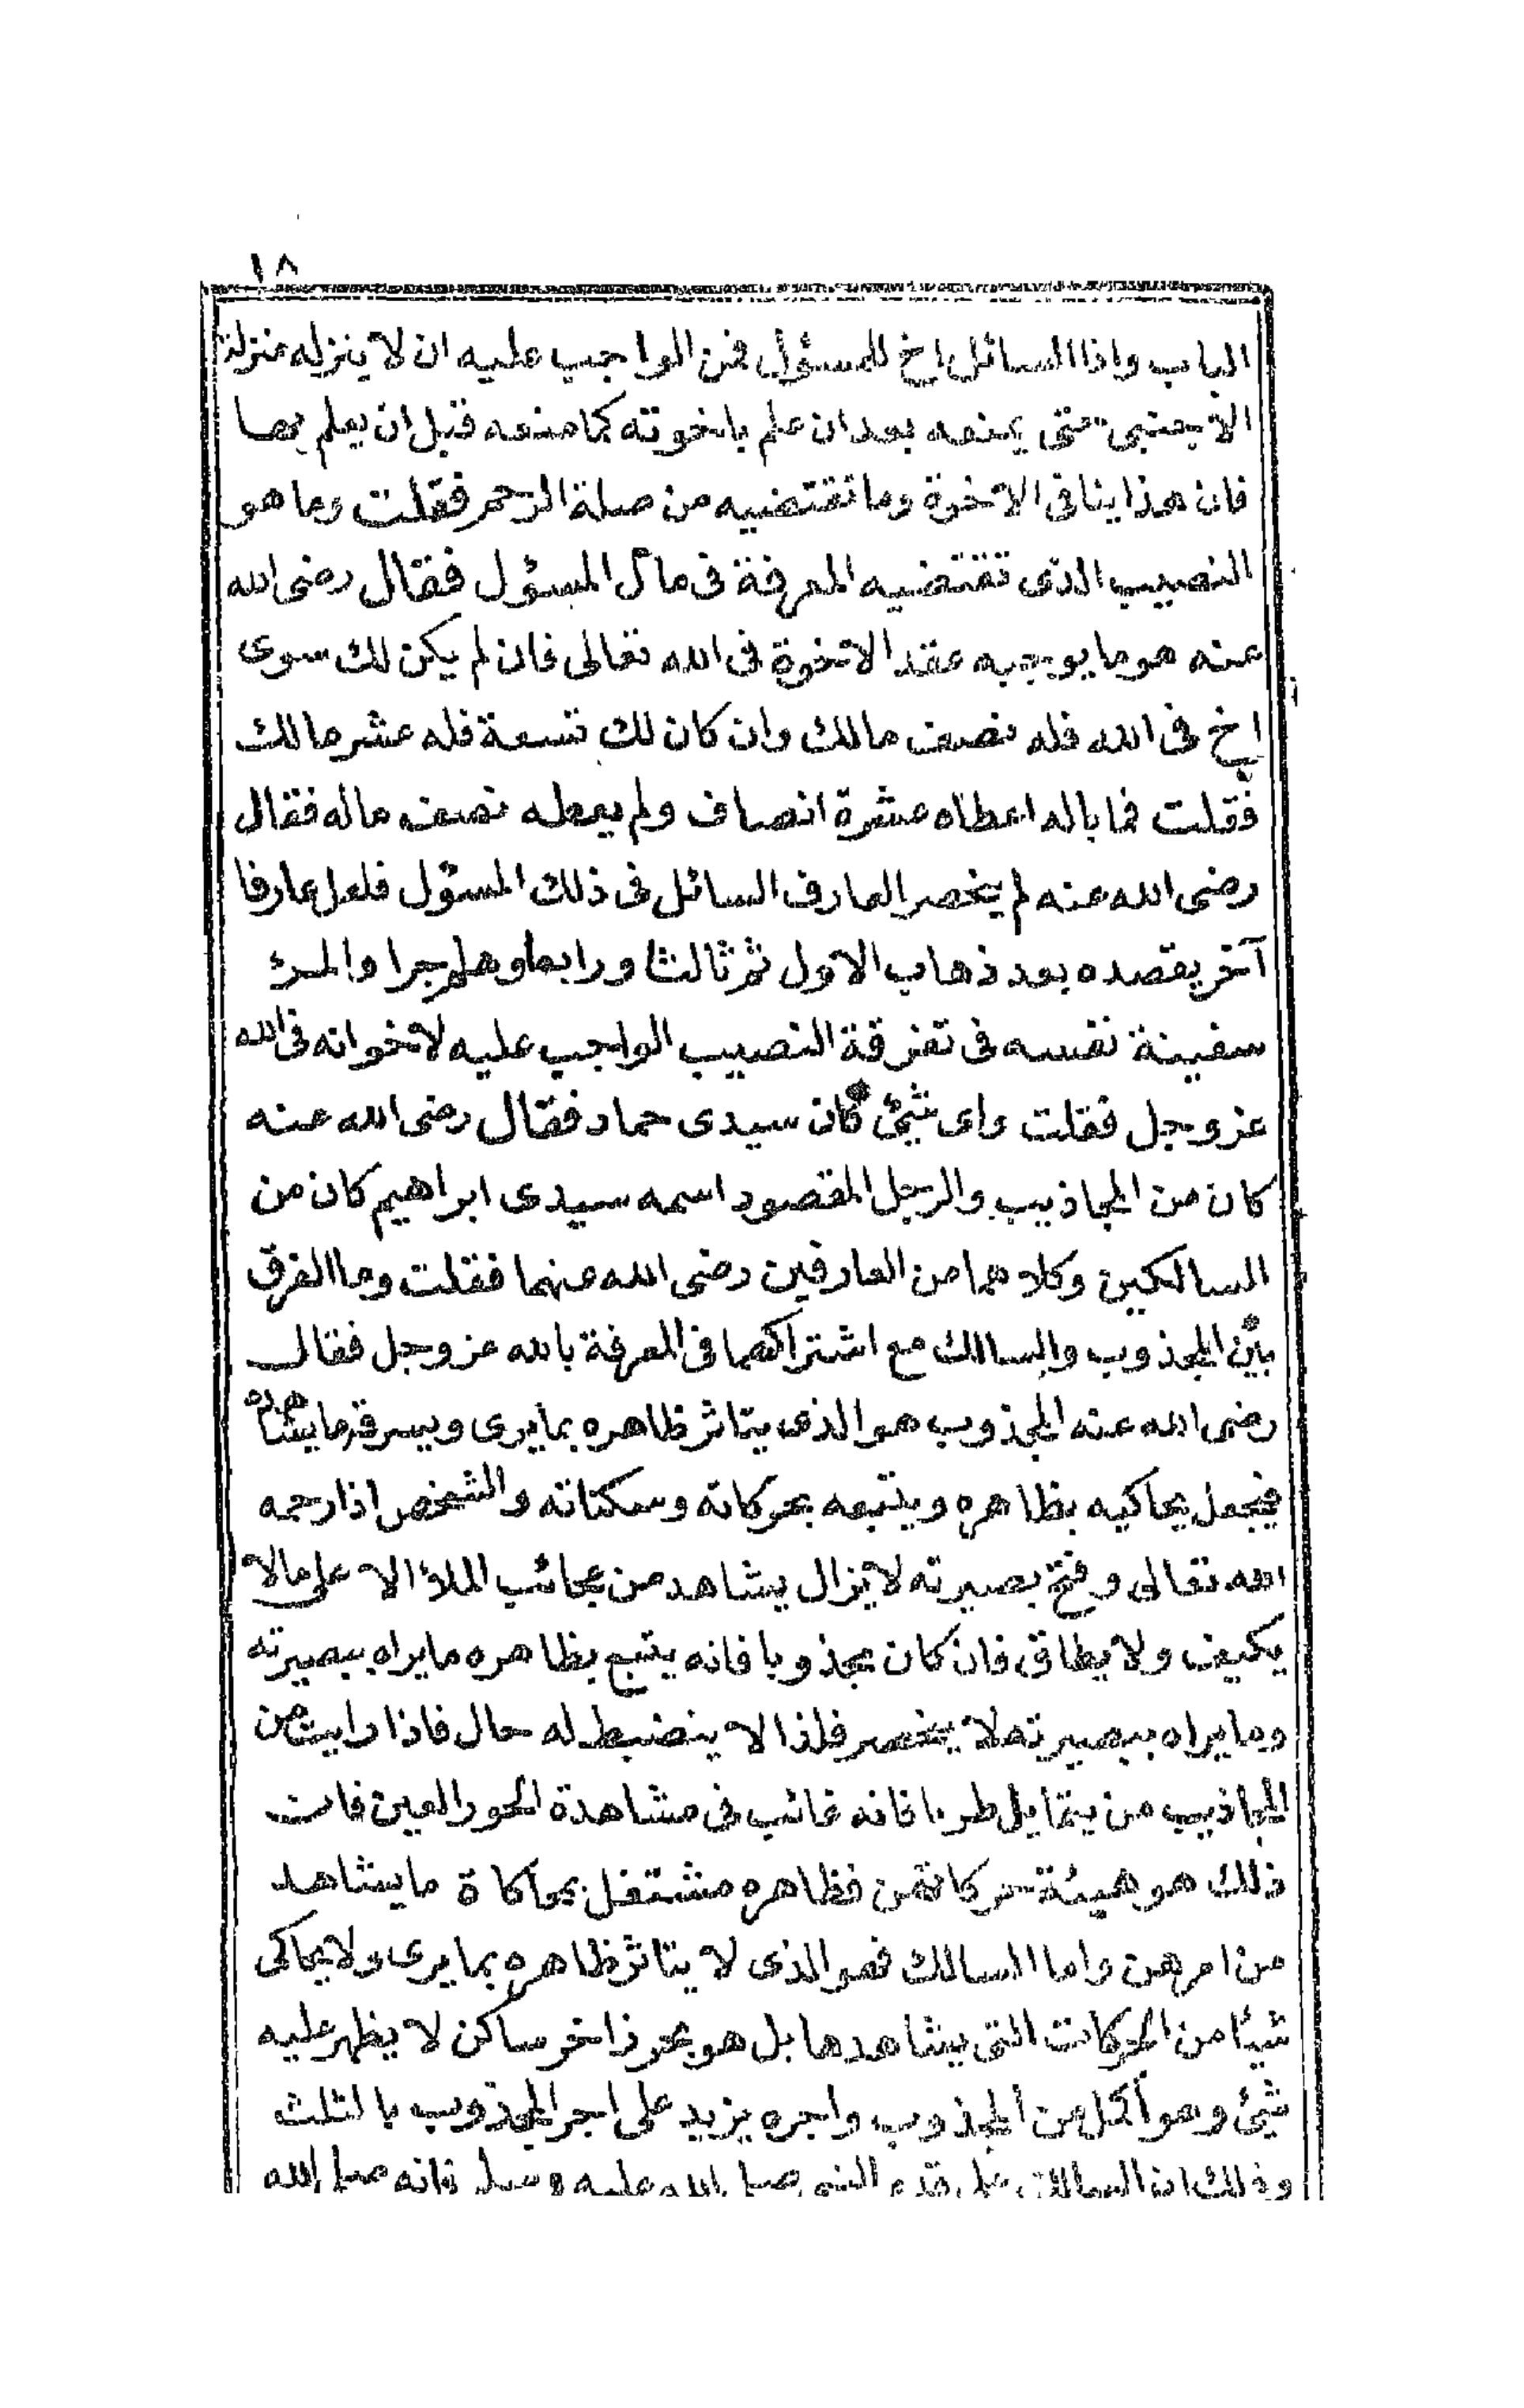 ١٨
الباب واذا السائل اخ للمسؤل فمن الواجب عليه ان لا ينزله منزلة
الاجنبى حتى يمنعه بعد ان علم باخوته كما منعه قبل ان يعلم بها
فان هذا ينافى الاخوة وما تقتضيه من صلة الرحم فقلت وما هو
النصيب الذى تقتضيه المعرفة فى مال المسؤل فقال رضى الله
عنه هو ما يوجبه عقد الاخوة فى الله تعالى فان لم يكن لك سوى
اخ فى الله فله نصف مالك وان كان لك تسعة فله عشر مالك
فقلت فما باله اعطاه عشرة انصاف ولم يعطه نصف ماله فقال
رضى الله عنه لم ينحصر العارف السائل فى ذلك المسؤل فلعل عارفا
آخر يقصده بعد ذهاب الاول ثم ثالثا ورابعا وهلم جرا والمرء
سفينة نفسه فى تفرقة النصيب الواجب عليه لاخوانه فى الله
عز وجل فقلت واى شئ كان سيدى حماد فقال رضى الله عنه
كان من المجاذيب والرجل المقصود اسمه سيدى ابراهيم كان من
السالكين وكلاهما من العارفين رضى الله عنهما فقلت وما الفرق
بين المجذوب والسالك مع اشتراكهما فى المعرفة بالله عز وجل فقال
رضى الله عنه المجذوب هو الذى يتاثر ظاهره بما يرى ويسرقه ما يشاهده
فيجعل يحاكيه بظاهره ويتبعه بحركاته وسكناته والشخص اذا رحمه
الله تعالى وفتح بصيرته لا يزال يشاهد من عجائب الملاء الاعلى ما لا
يكيف ولا يطاق فان كان مجذوبا فانه يتبع بظاهره ما يراه ببصيرته
وما يراه ببصيرته لا ينحصر فلذا لا ينضبط له حال فاذا رايت من
المجاذيب من يتمايل طربا فانه غائب فى مشاهدة الحور العين فان
ذلك هو هيئة حركاتهن فظاهره مشتغل بمحاكاة ما يشاهد
من امرهن واما السالك فهو الذى لا يتاثر ظاهره بما يرى ولا يحاكى
شيئا من الحركات التى يشاهدها بل هو بحر زاخر ساكن لا يظهر عليه
شئ وهو اكمل من المجذوب واجره يزيد على اجر المجذوب بالثلث
وذلك ان السالك على قدم النبى صلى الله عليه وسلم فانه صلى الله